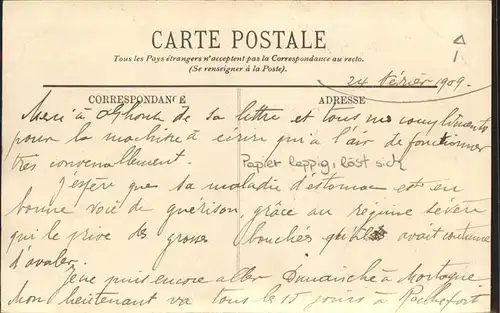 CARTE POSTALE
Tous les Pays étrangers n'acceptent pas la Correspondance au recto.
(Se renseigner à la Poste).
24 février 1909.
CORRESPONDANCE
ADRESSE
Merci à de sa lettre et tous mes compliments
pour la machine à écrire qui a l'air de fonctionner
très convenablement.
Papier lappig, löst sich
J'espère que sa maladie d'estomac est en
bonne voie de guérison, grâce au régime sévère
qui le prive des grosses bouchées qu'il avait coutume
d'avaler.
Je ne puis encore aller Dimanche à Mortagne
Mon lieutenant va tous les 15 jours à Rochefort